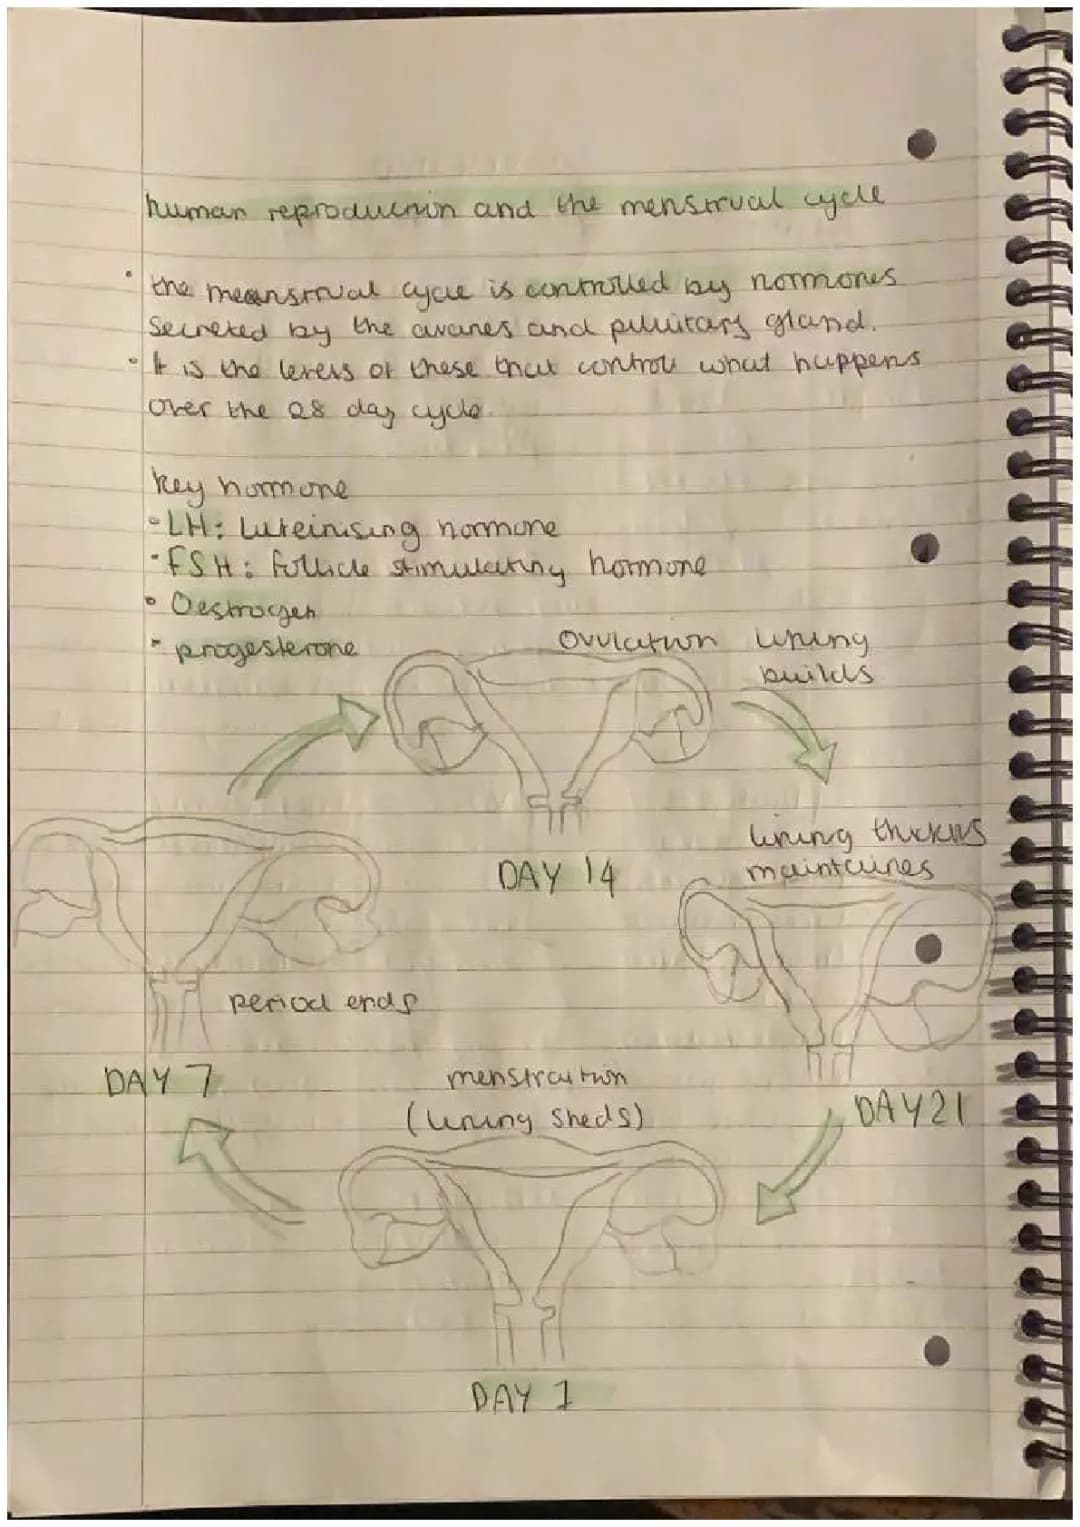 human reproduction and the menstrual cycle
• the meanstrual cycle is controlled by hormones
secreted by the ovaries and pituitary gland.
• It is the levels of these that control what happens
over the 28 day cycle.
key hormone
• LH: Luteinising hormone
• FSH: follicle stimulating hormone
• Oestrogen
• progesterone
Ovulation lining
builds
lining thickens
maintaines
DAY 14
period ends
DAY 7
menstration
(lining sheds)
DAY 21
DAY 1